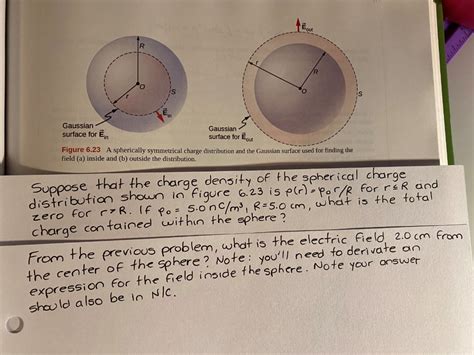 E⃗out
R
r
O
S
E⃗in
Gaussian
surface for E⃗in
r
R
O
S
Gaussian
surface for E⃗out
Figure 6.23 A spherically symmetrical charge distribution and the Gaussian surface used for finding the
field (a) inside and (b) outside the distribution.
Suppose that the charge density of the spherical charge
distribution shown in figure 6.23 is ρ(r)=ρ₀r/R for r≤R and
zero for r>R. If ρ₀= 5.0nC/m³, R=5.0 cm, what is the total
charge contained within the sphere?
From the previous problem, what is the electric field 2.0 cm from
the center of the sphere? Note: you'll need to derivate an
expression for the field inside the sphere. Note your answer
should also be in N/C.